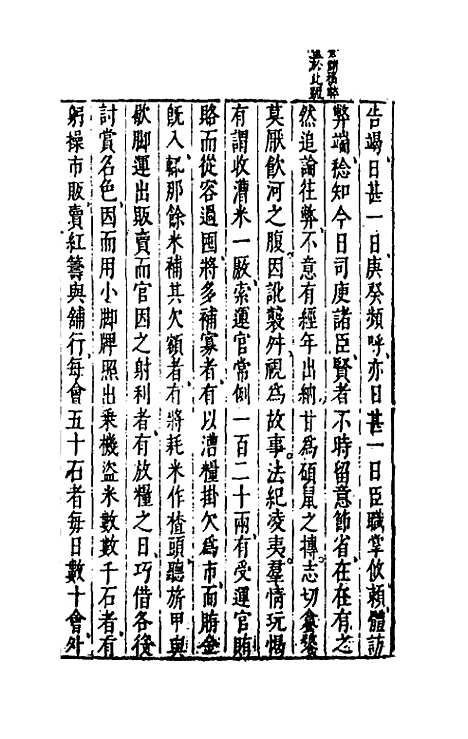 於此觀
告竭日甚一日庚癸頻呼亦日甚一日臣職掌攸賴體訪
弊端稔知今日司庾諸臣賢者不時留意節省在在有之
然追論往弊不意有經年出納甘為碩鼠之摶志切
莫厭飲河之腹因訛襲舛視爲故事法紀凌夷羣情玩愒
有謂收漕米一厫索運官常例一百二十兩有受運官賄
賂而從容過囤將多補寡者有以漕糧掛欠爲市而賂金
旣入輒那餘米補其欠額者有將耗米作楂頭聽旂甲與
歇脚運出販賣而官因之射利者有放糧之日巧借各役
討賞名色因而用小脚牌照出乘機盜米數數千石者有
躬操市販賣紅籌與舖行每會五十石者每日數十會外